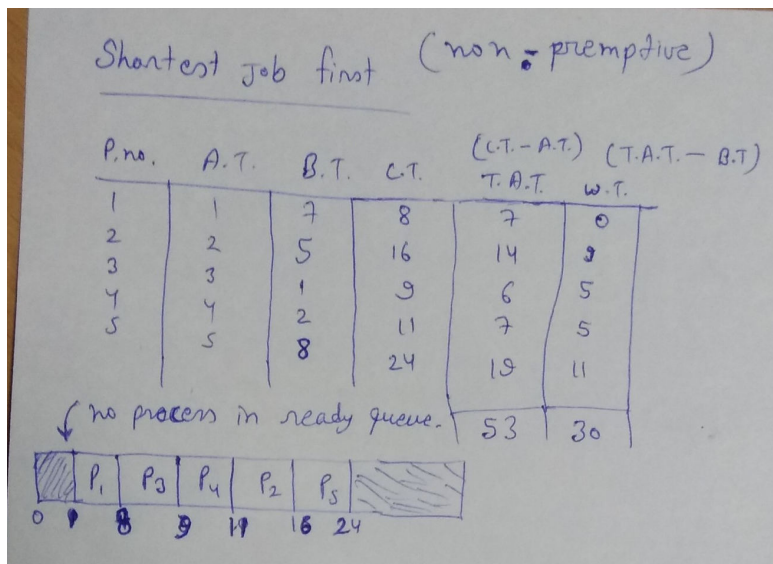 Shortest Job first (non-premptive)
(C.T. - A.T.) (T.A.T. - B.T)
P.no. A.T. B.T. C.T. T.A.T. W.T.
1 1 7 8 7 0
2 2 5 16 14 9
3 3 1 9 6 5
4 4 2 11 7 5
5 5 8 24 19 11
53 30
no process in ready queue.
P1 P3 P4 P2 P5
0 1 8 9 11 16 24